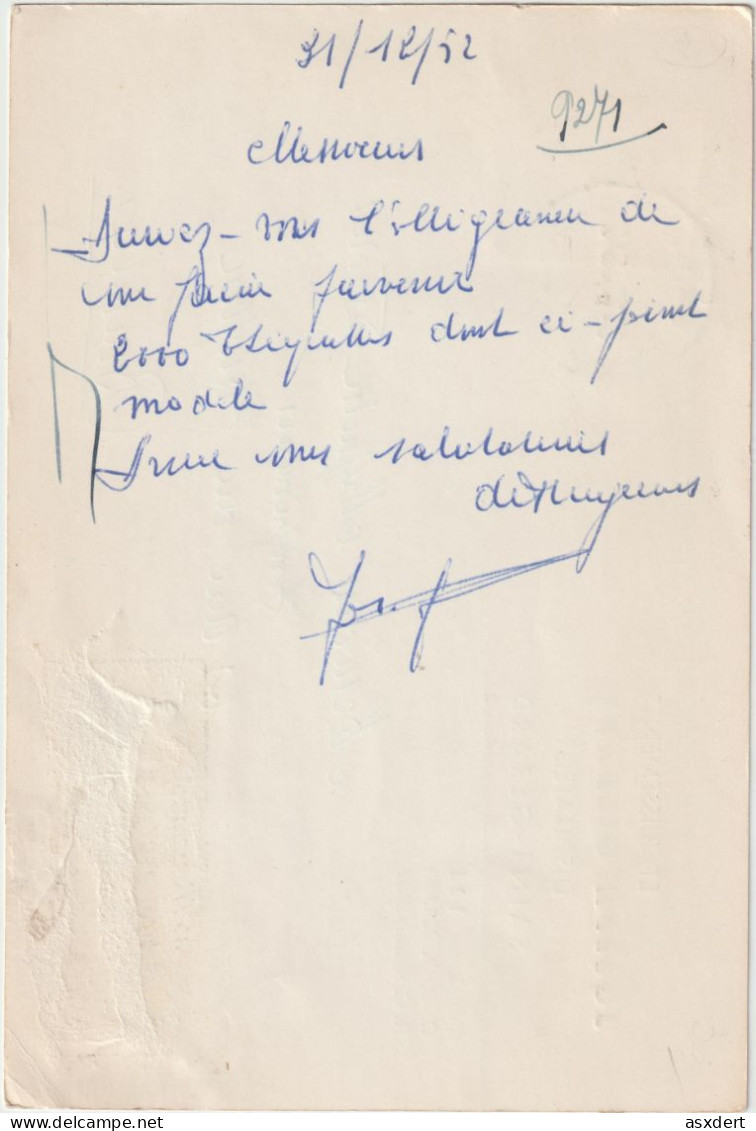 31/12/52
9271
Messieurs
Auriez-vous l'obligeance de
me faire parvenir
2000 Etiquettes dont ci-joint
modèle
vous salutations
distinguées
delcampe.net
asxdert